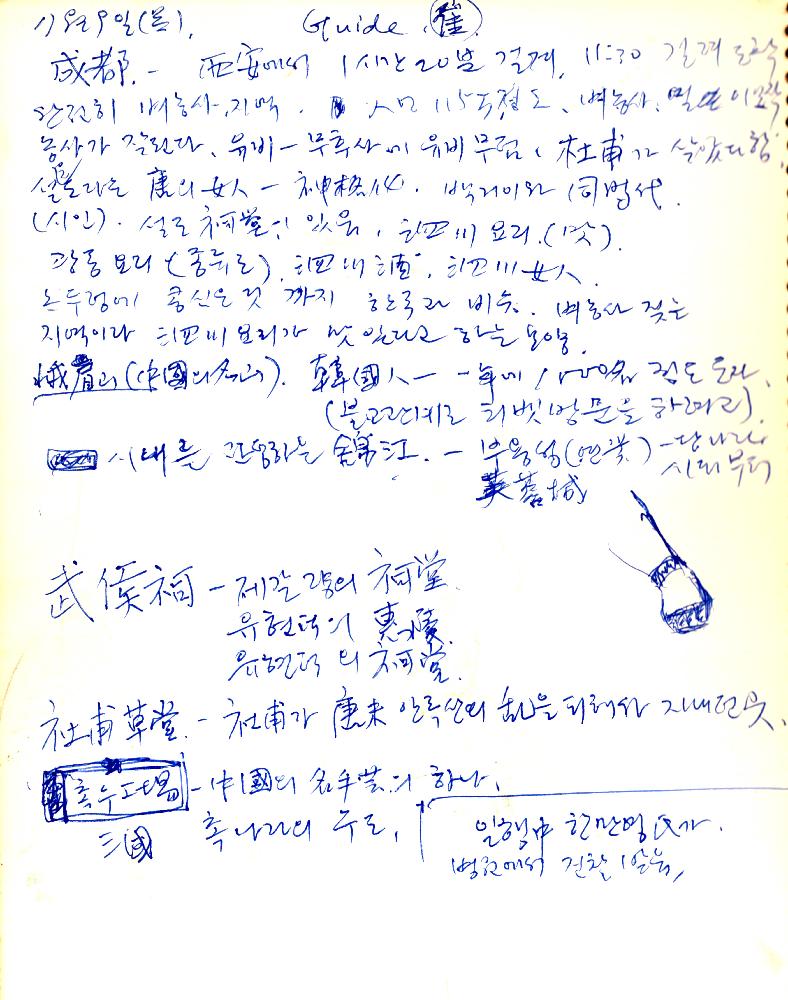 11月9일(목). Guide. 崔
成都. - 西安에서 1시간 20분 걸려, 11:30 도착
완전히 벼농사 지역. 人口 115 정도, 벼농사, 밀 이모작
농사가 잘된다. 유비 - 무후사에 유비 무덤, 杜甫가 살았다 함.
설도라는 唐의 女人 - 神格化. 백거이와 同時代.
(시인). 설도 祠堂이 있음, 四川 요리. (맛).
광동 요리 (종류로). 四川酒, 四川女人.
논두렁에 콩심은 것 까지 한국과 비슷. 벼농사 짓는
지역이라 四川 요리가 맛 있다고 하는 모양.
峨眉山(中國의 名山). 韓國人 - 一年에 1000名 정도 도착.
(불교관계로 티벳 방문을 하려고).
시내를 관통하는 錦江. - 부용성(연꽃) - 당나라 시대부터
芙蓉城
武侯祠 - 제갈량의 祠堂.
유현덕의 惠陵.
유현덕의 祠堂.
杜甫草堂. - 杜甫가 唐末 안록산의 亂을 피해와 지내던 곳.
촉수工場 - 中國의 名手芸의 하나.
三國 촉나라의 수도.
일행中 한만영 氏가.
병원에서 진찰 받음.